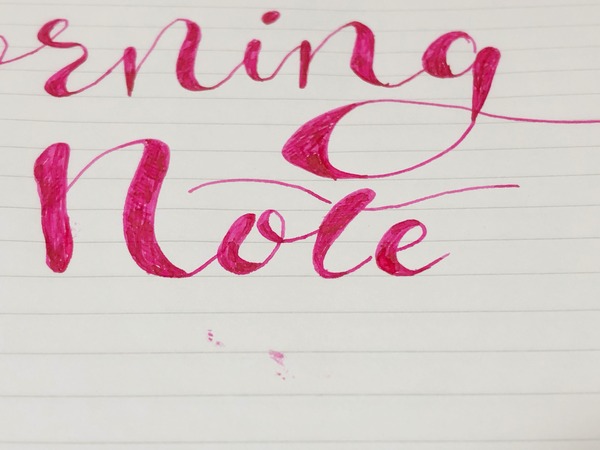 orning
Note